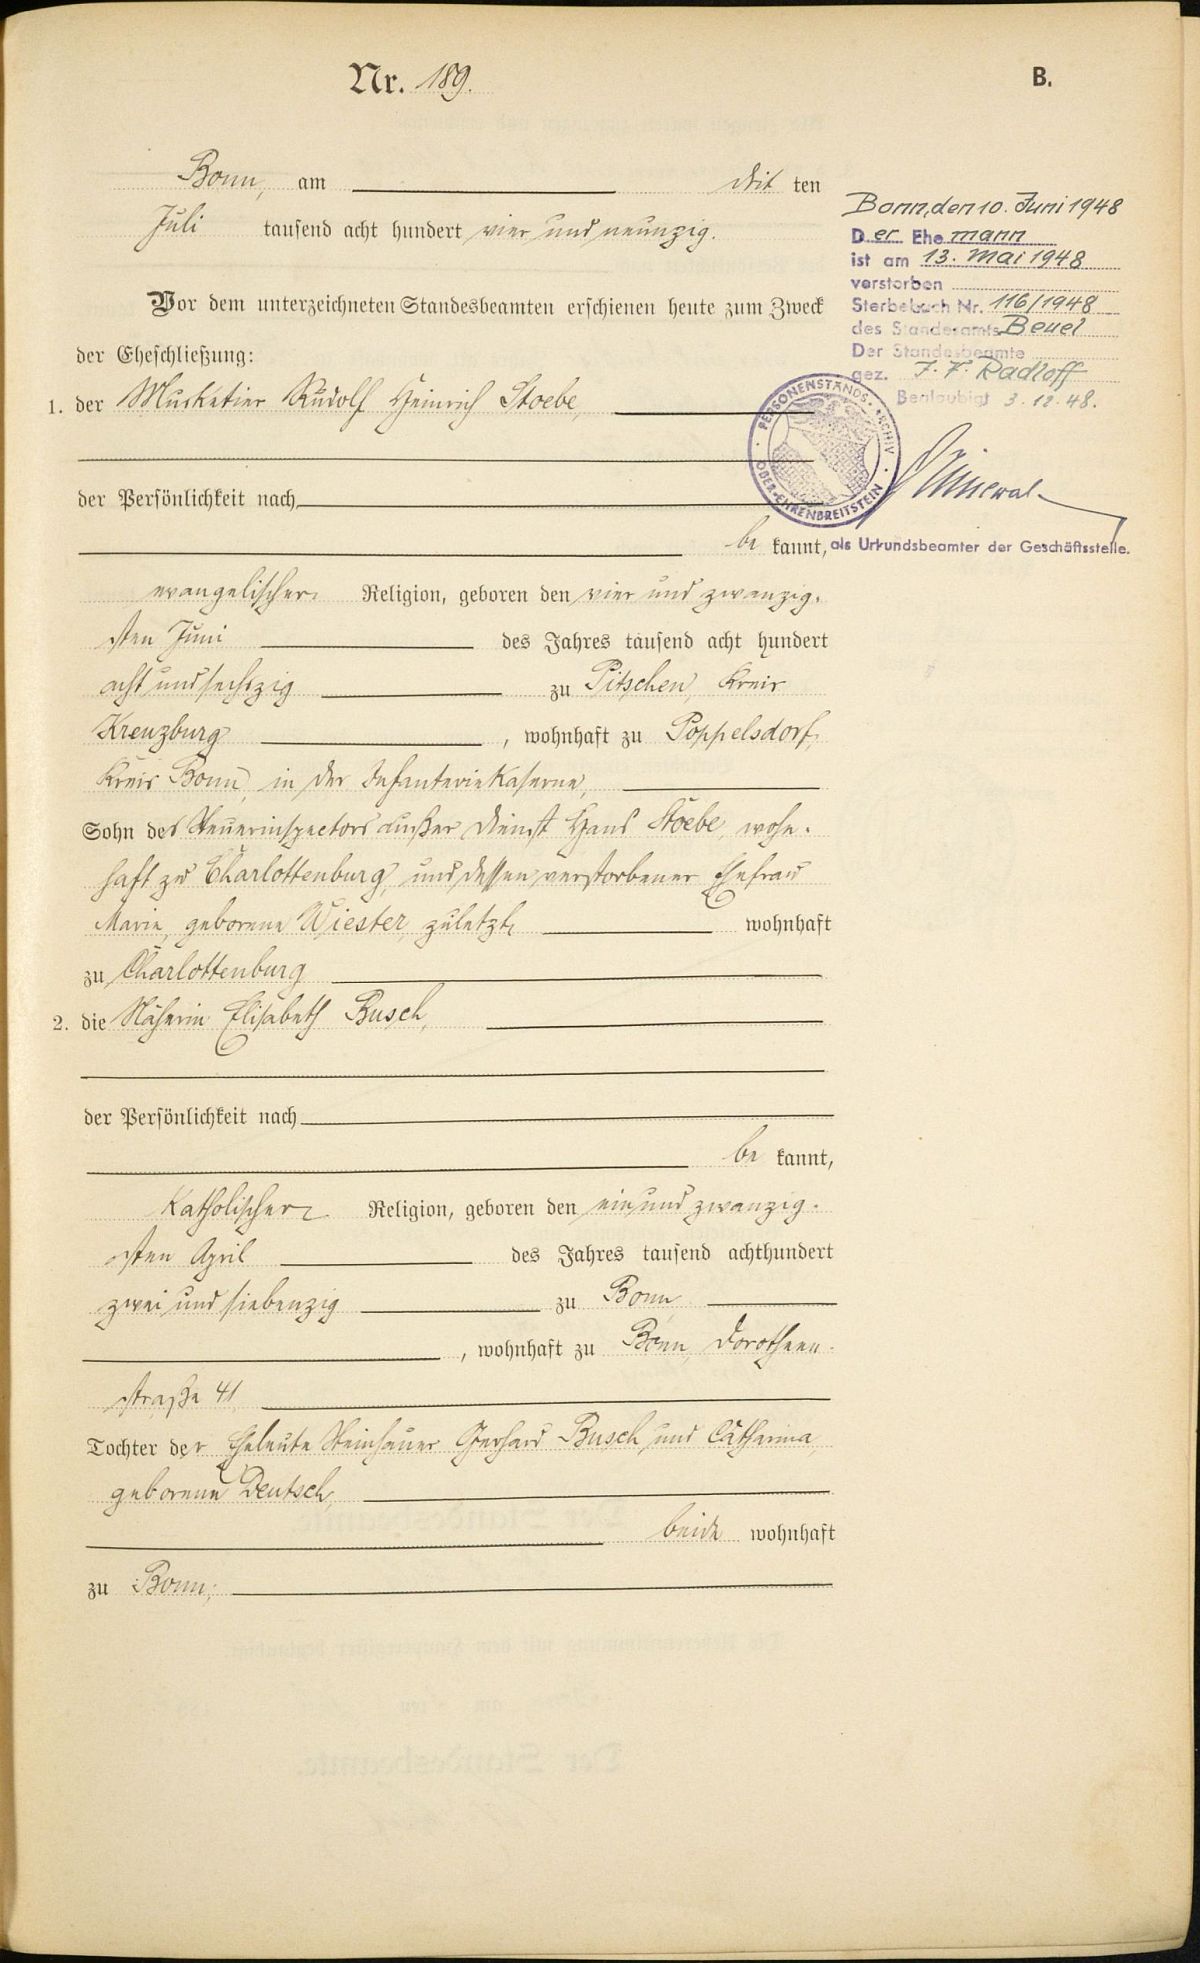 Nr. 189.
B.
Bonn, am drit ten
Juli tausend acht hundert vier und neunzig.
Vor dem unterzeichneten Standesbeamten erschienen heute zum Zweck
der Eheschließung:
1. der Musketier Rudolf Heinrich Stoebe,
der Persönlichkeit nach
be kannt,
evangelischer Religion, geboren den vier und zwanzig-
sten Juni des Jahres tausend acht hundert
acht und sechszig zu Pitschen, Kreis
Kreuzburg, wohnhaft zu Poppelsdorf,
Kreis Bonn, in der Infanteriekaserne,
Sohn des Steuerinspectors außer Dienst Hans Stoebe, wohn-
haft zu Charlottenburg, und dessen verstorbener Ehefrau
Marie, geborene Wiester, zuletzt wohnhaft
zu Charlottenburg
2. die Näherin Elisabeth Busch,
der Persönlichkeit nach
be kannt,
katholischer Religion, geboren den ein und zwanzig-
sten April des Jahres tausend achthundert
zwei und siebenzig zu Bonn
, wohnhaft zu Bonn, Dorotheen-
straße 41,
Tochter der Eheleute Steinhauer Gerhard Busch und Catharina
geborene Deutsch,
beide wohnhaft
zu Bonn;
Bonn, den 10. Juni 1948
Der Ehemann
ist am 13. Mai 1948
verstorben
Sterbebuch Nr. 116/1948
des Standesamts Beuel
Der Standesbeamte
gez. J. V. Radloff
Beglaubigt 3.12.48.
PERSONENSTANDS-ARCHIV
OBER-EHRENBREITSTEIN
als Urkundsbeamter der Geschäftsstelle.